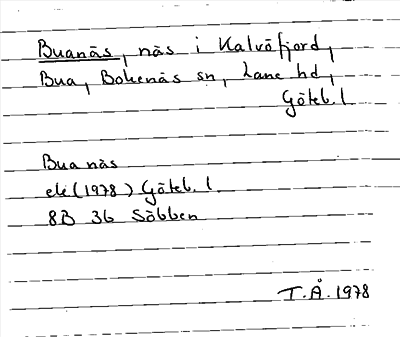 Buanäs, näs i Kalvöfjord,
Bua, Bokenäs sn, Lane hd,
Göteb. l
Buanäs
ek (1978) Göteb. l.
8B 3b Säbben
T.Å. 1978